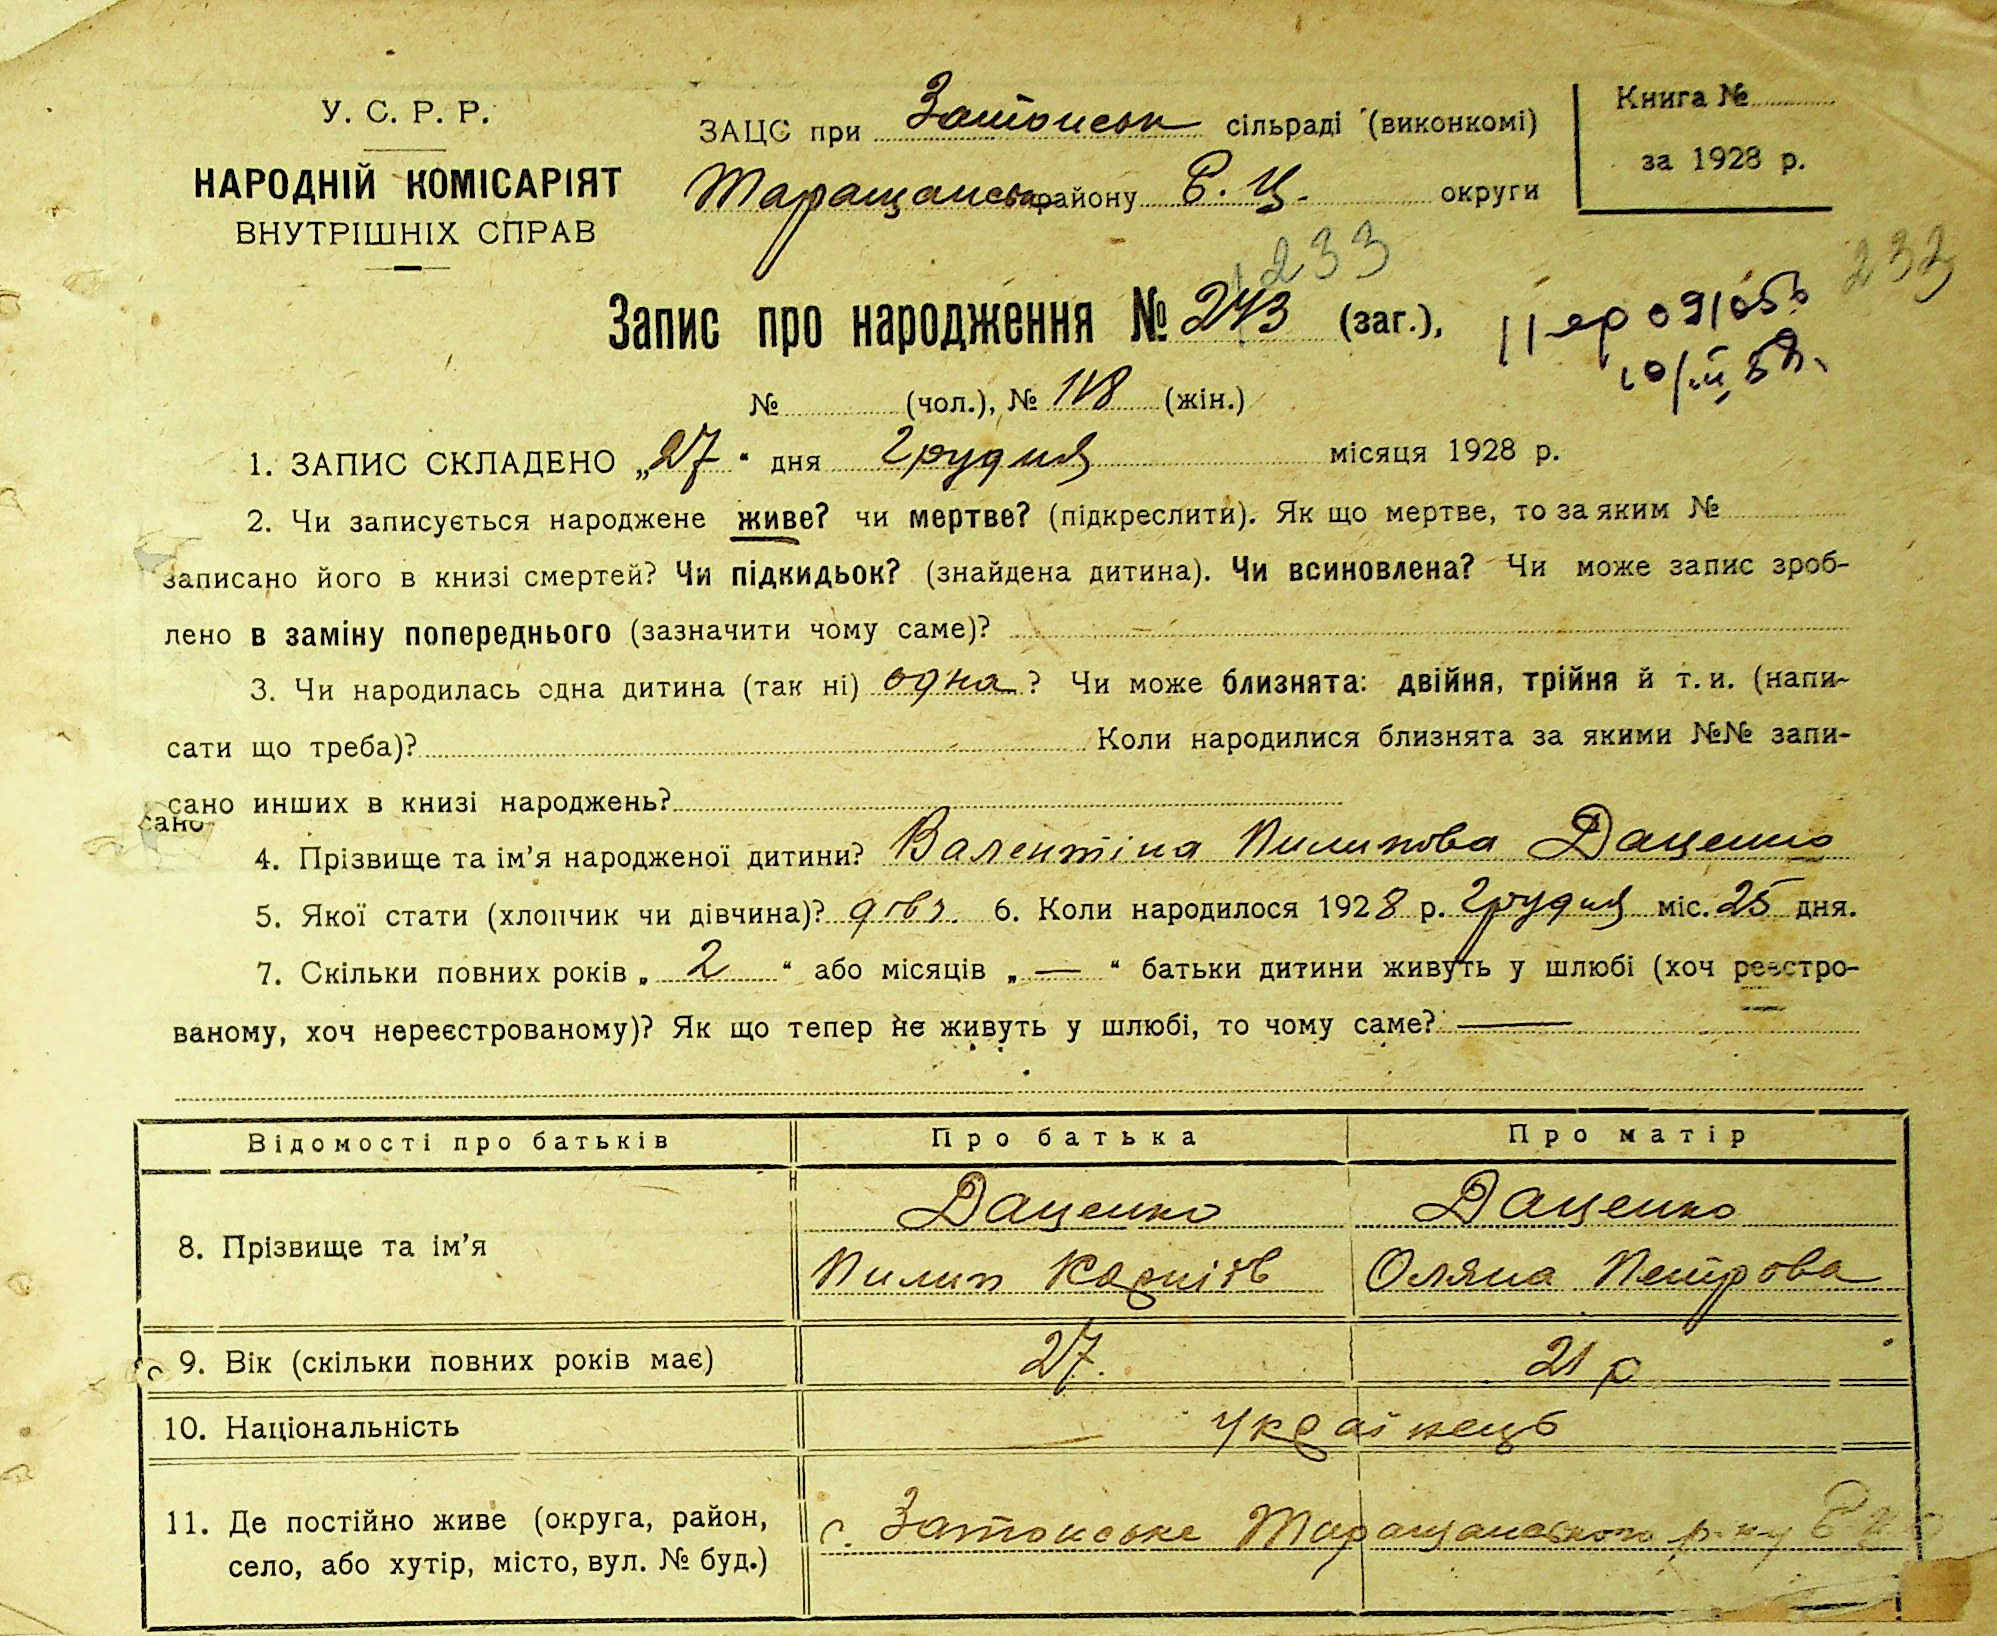 У. С. Р. Р.
НАРОДНІЙ КОМІСАРІЯТ
ВНУТРІШНІХ СПРАВ
ЗАЦС при Затонськ сільраді (виконкомі)
Таращанськ району Б. Ц. округи
Книга №
за 1928 р.
233
232
Запис про народження № 243 (заг.),
№ (чол.), № 118 (жін.)
1. ЗАПИС СКЛАДЕНО „27“ дня Грудня місяця 1928 р.
2. Чи записується народжене живе? чи мертве? (підкреслити). Як що мертве, то за яким №
записано його в книзі смертей? Чи підкидьок? (знайдена дитина). Чи всиновлена? Чи може запис зроб-
лено в заміну попереднього (зазначити чому саме)?
3. Чи народилась одна дитина (так ні) одна? Чи може близнята: двійня, трійня й т. и. (напи-
сати що треба)? Коли народилися близнята за якими №№ запи-
сано инших в книзі народжень?
сано
4. Прізвище та ім’я народженої дитини? Валентіна Пилипова Даценко
5. Якої стати (хлопчик чи дівчина)? дівч. 6. Коли народилося 1928 р. Грудня міс. 25 дня.
7. Скільки повних років „ 2 “ або місяців „ — “ батьки дитини живуть у шлюбі (хоч реєстро-
ваному, хоч нереєстрованому)? Як що тепер не живуть у шлюбі, то чому саме? —
Відомості про батьків Про батька Про матір
8. Прізвище та ім’я
Даценко Даценко
Пилип Карпів Оляна Петрова
9. Вік (скільки повних років має) 27. 21 р
10. Національність українець
11. Де постійно живе (округа, район,
село, або хутір, місто, вул. № буд.)
с. Затонське Таращанського р-ну